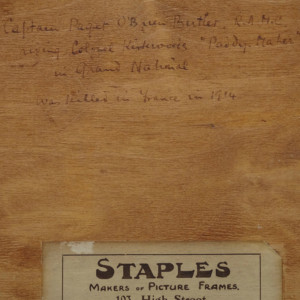 Captain Paget O'Brien Butler, R.A.M.C.
riding Colonel Kirkwood's "Paddy Maher"
in Grand National
killed in France in 1914
STAPLES
MAKERS OF PICTURE FRAMES,
103, High Street